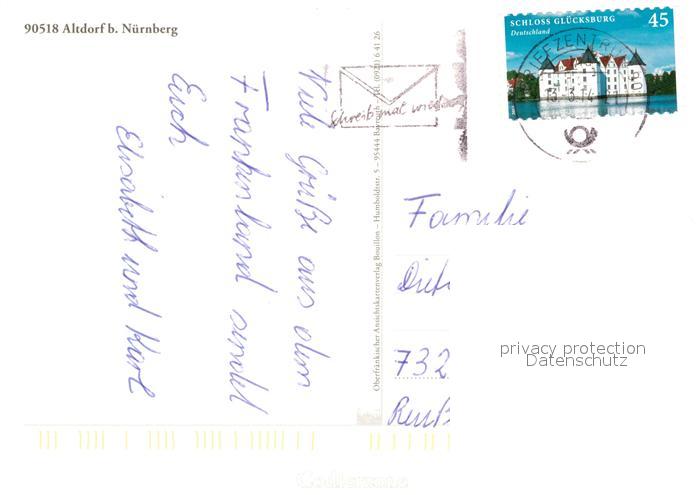 90518 Altdorf b. Nürnberg
SCHLOSS GLÜCKSBURG 45
Deutschland
BRIEFZENTRUM
Schreib mal wieder
Viele Grüße aus dem
Frankenland sendet
Euch
Elisabeth und Karl
Oberfränkischer Ansichtskartenverlag Bouillon – Humboldtstr. 5 – 95444 Bayreuth – Tel. (0921) 6 41 26
Familie
Diet
732
privacy protection
Datenschutz
Codierzone